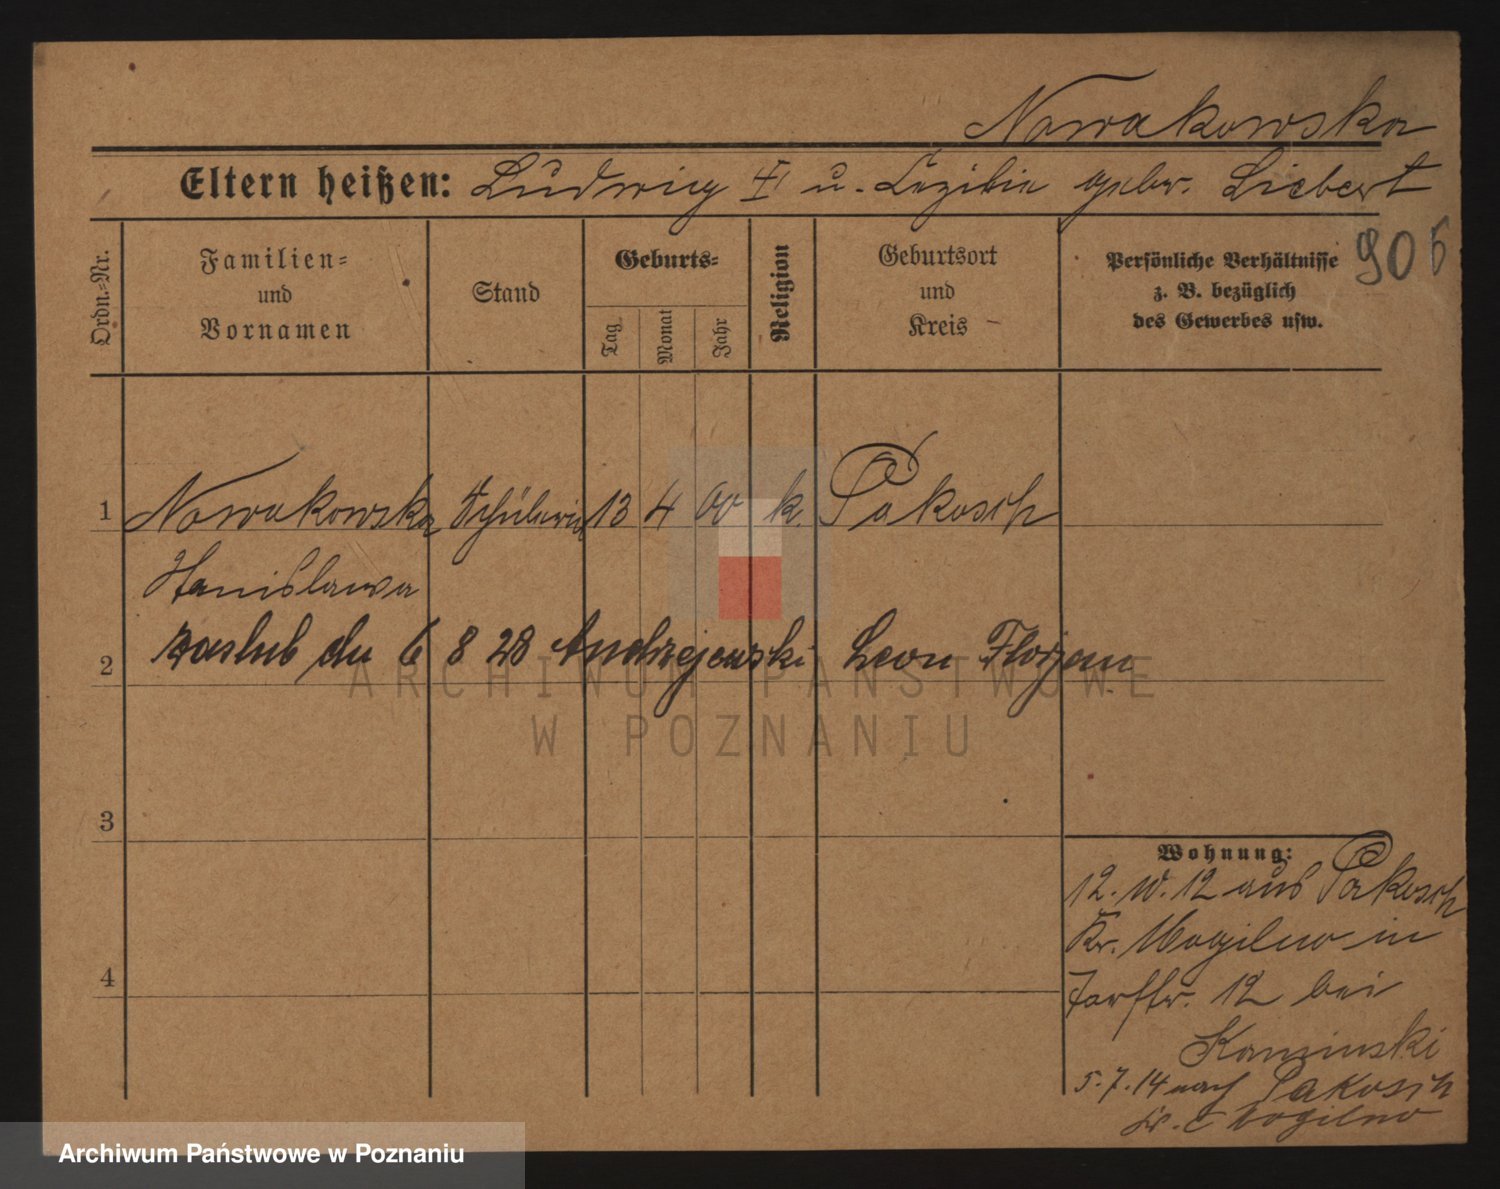 Nowakowska
Eltern heißen: Ludwig † u. Cezilie gebr. Liebert
905
Ordn.-Nr.
Familien-
und
Vornamen
Stand
Geburts-
Tag
Monat
Jahr
Religion
Geburtsort
und
Kreis
Persönliche Verhältnisse
z. B. bezüglich
des Gewerbes usw.
1 Nowakowska Schülerin 13 4 00 k. Pakosch
Stanislawa
2 zaslub dn 6 8 28 Andrzejewski Leon Florjan
3
4
Wohnung:
12. 10. 12 aus Pakosch
Kr. Mogilno in
12 bei
Kaminski
5.7.14 nach Pakosch
Kr. Mogilno
ARCHIWUM PAŃSTWOWE
W POZNANIU
Archiwum Państwowe w Poznaniu